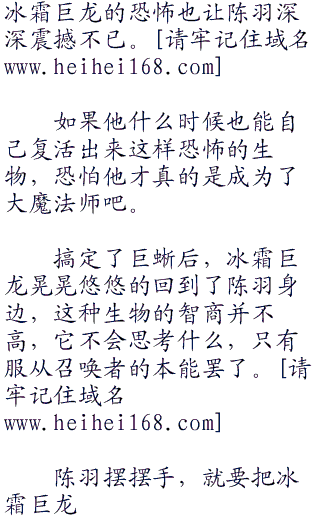 冰霜巨龙的恐怖也让陈羽深
深震撼不已。[请牢记住域名
www.heihei168.com]
如果他什么时候也能自
己复活出来这样恐怖的生
物，恐怕他才真的是成为了
大魔法师吧。
搞定了巨蜥后，冰霜巨
龙晃晃悠悠的回到了陈羽身
边，这种生物的智商并不
高，它不会思考什么，只有
服从召唤者的本能罢了。[请
牢记住域名
www.heihei168.com]
陈羽摆摆手，就要把冰
霜巨龙